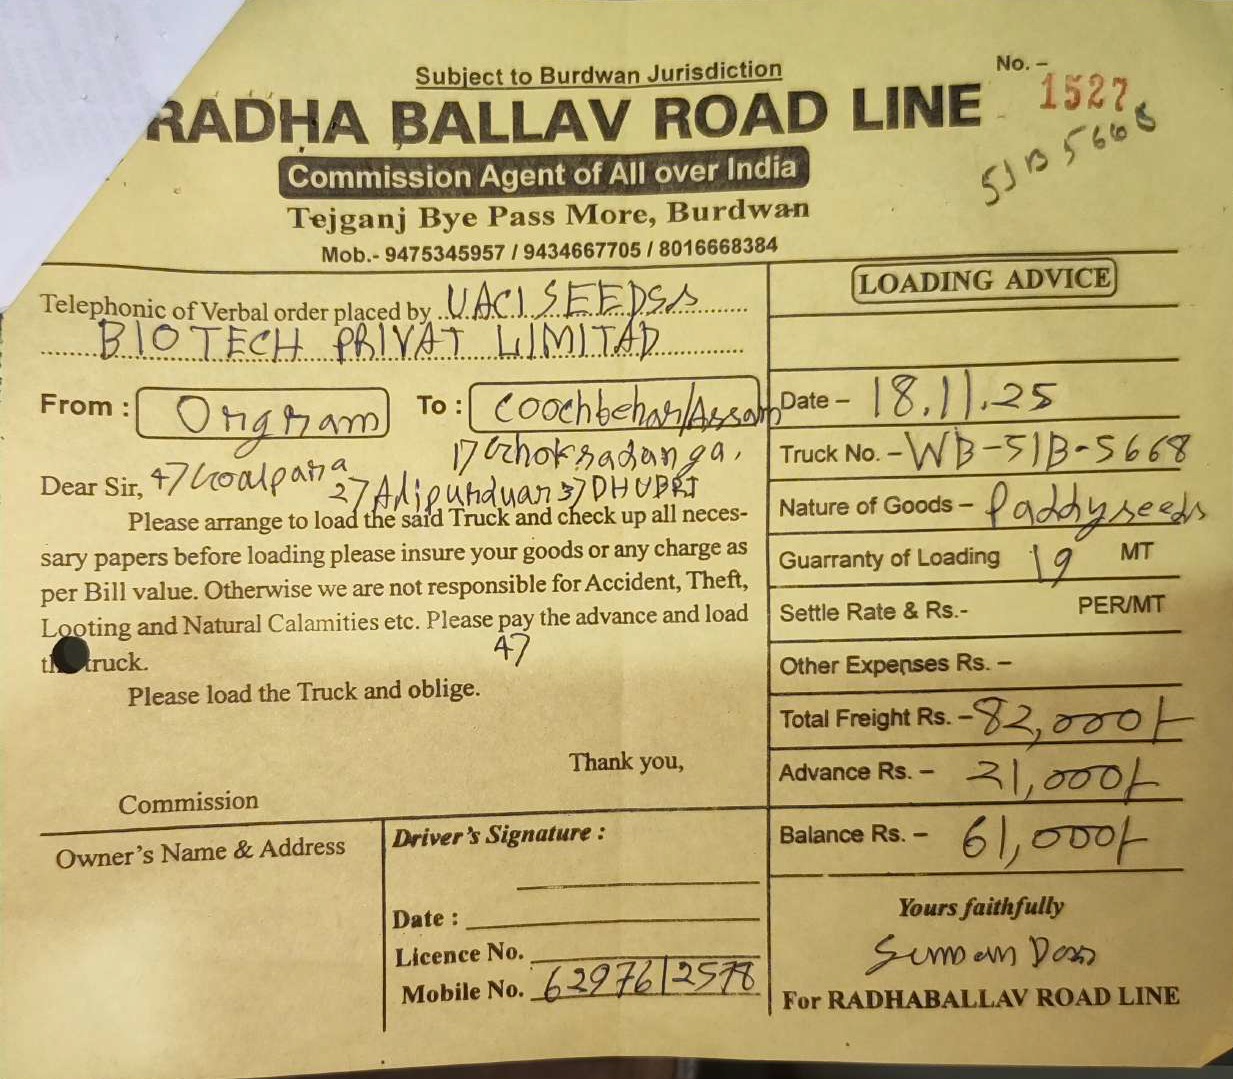 Subject to Burdwan Jurisdiction
No. - 1527
RADHA BALLAV ROAD LINE
51B 5668
Commission Agent of All over India
Tejganj Bye Pass More, Burdwan
Mob.- 9475345957 / 9434667705 / 8016668384
Telephonic of Verbal order placed by UACI SEEDS
BIOTECH PRIVAT LIMITAD
From : Orgram To : Coochbehar/Assam
17 Ghoksadanga,
Dear Sir, 47 Goalpara 27 Alipurduar 37 DHUBRI
Please arrange to load the said Truck and check up all neces-
sary papers before loading please insure your goods or any charge as
per Bill value. Otherwise we are not responsible for Accident, Theft,
Looting and Natural Calamities etc. Please pay the advance and load
truck.
47
Please load the Truck and oblige.
Thank you,
Commission
Owner's Name & Address
Driver's Signature :
Date :
Licence No.
Mobile No. 6297612578
LOADING ADVICE
Date - 18.11.25
Truck No. - WB-51B-5668
Nature of Goods - Paddy seeds
Guarranty of Loading 19 MT
Settle Rate & Rs.- PER/MT
Other Expenses Rs. -
Total Freight Rs. - 82,000/-
Advance Rs. - 21,000/-
Balance Rs. - 61,000/-
Yours faithfully
Suman Das
For RADHABALLAV ROAD LINE